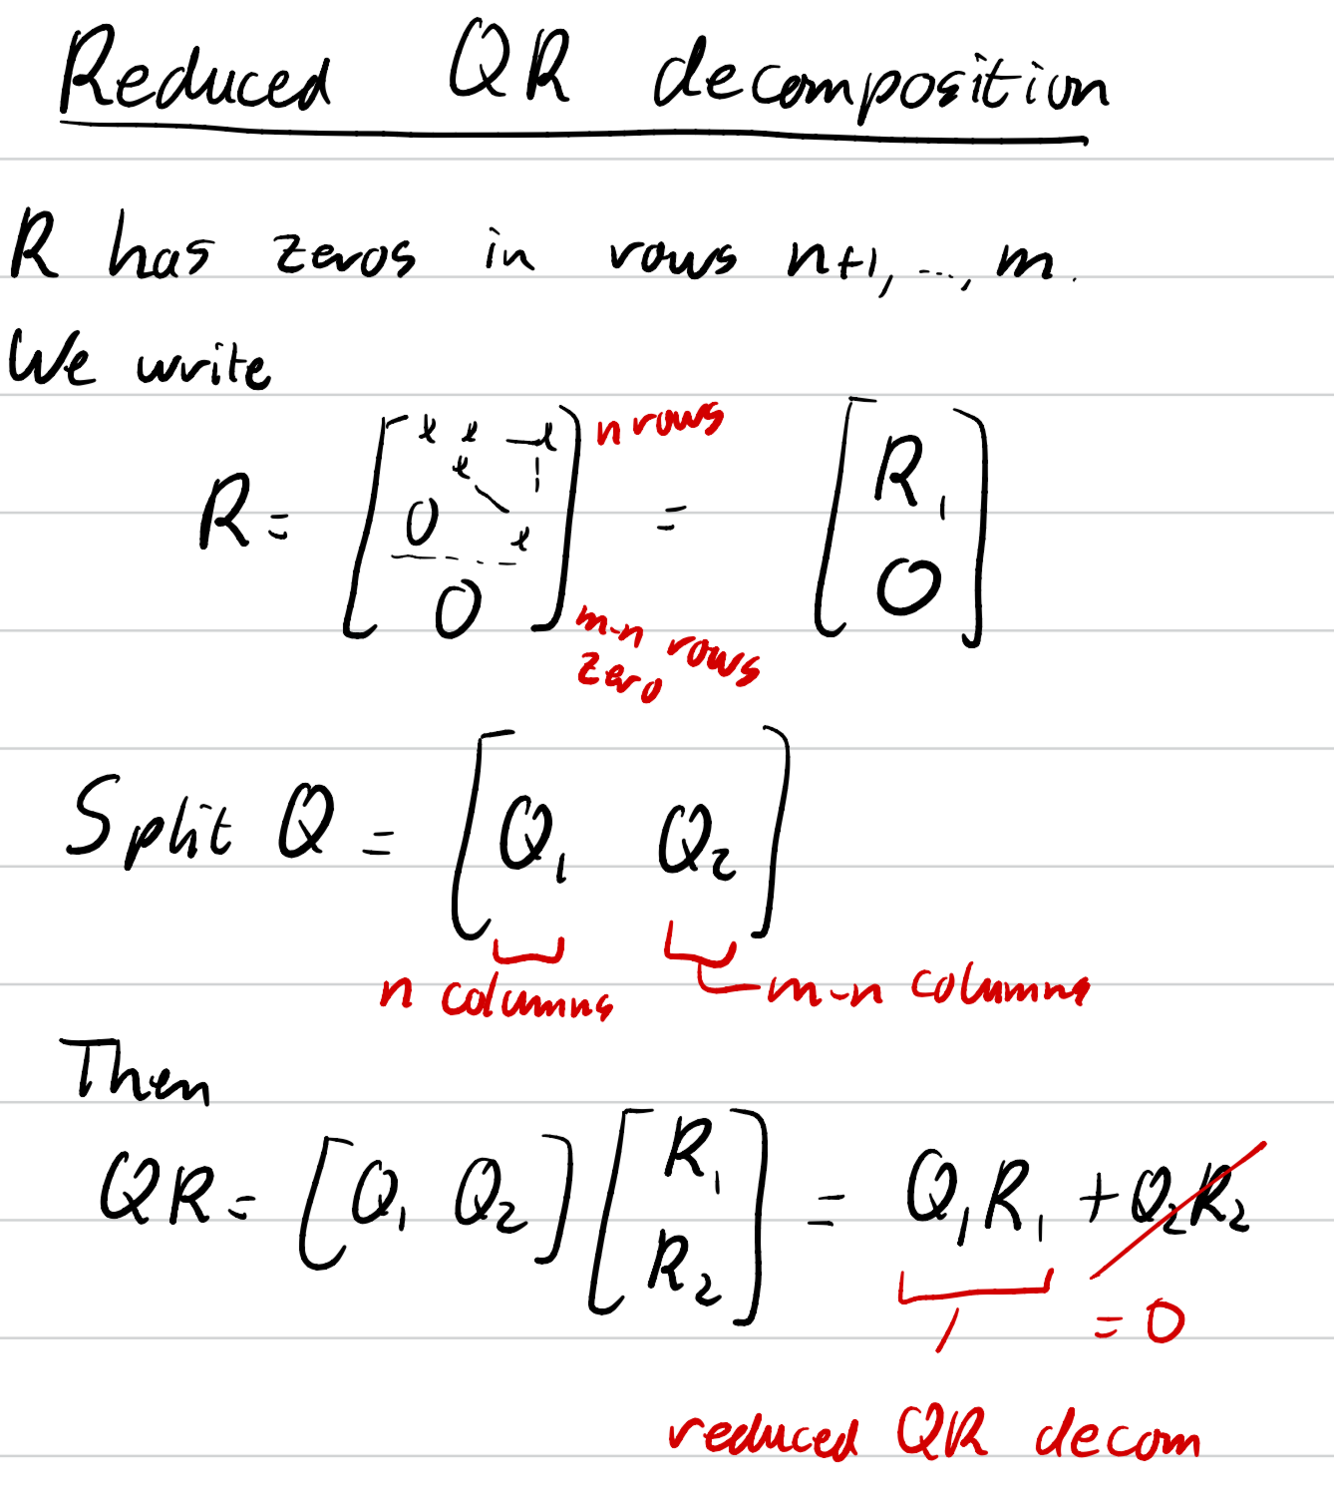 Reduced QR decomposition
R has zeros in rows n+1, ..., m.
We write
R = [ x x — x ; x \ ¦ ; 0 x ; 0 ] n rows m-n rows zero = [ R₁ ; 0 ]
Split Q = [ Q₁ Q₂ ]
n columns m-n columns
Then
QR = [ Q₁ Q₂ ] [ R₁ ; R₂ ] = Q₁R₁ + Q₂R₂
= 0
reduced QR decom